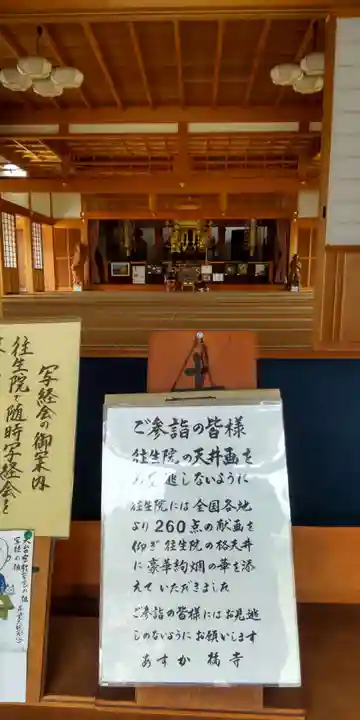 ご参詣の皆様
往生院の天井画を
お見逃しないように
往生院には全国各地
より260点の献画を
仰ぎ往生院の格天井
に豪華絢爛の華を添
えていただきました
ご参詣の皆様にはお見逃
しのないようにお願いします
あすか橘寺
写経会の御案内
往生院で随時写経会を